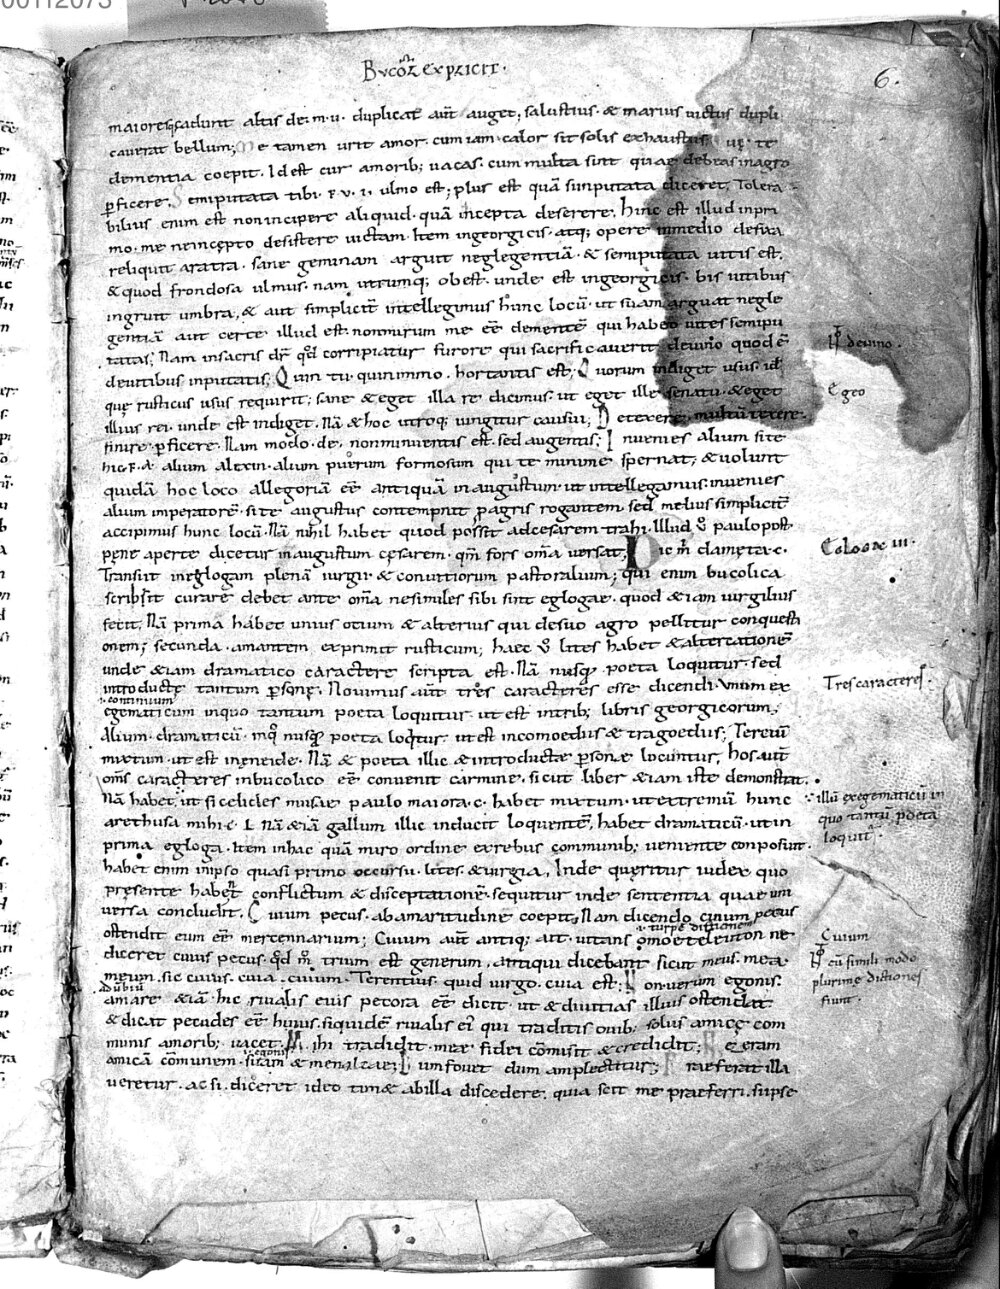 BVCOꝶ EXPLICIT.
6.
maioresq; cadunt altis de·m·u· duplicat aut auget; salustius· & marius uictus dupli
cauerat bellum; Me tamen urit amor· cum iam calor sit solis exhaustus· ut te
dementia coepit· Id est cur amorib; uacas· cum multa sint quae debeas in agro
ꝑficere. Semiputata tibi·F·V·I· ulmo est; plus est quā si inputata diceret; Tolera
bilius enim est non incipere aliquid· quā incepta deserere· hinc est illud in pri
mo· me ne incepto desistere uictam· Item in georgicis· atq; opere in medio defixa
reliquit aratra· sane geminam arguit neglegentiā· & semiputata uitis est·
& quod frondosa ulmus· nam utrumq; obest· unde est in georgicis· bis uitibus
ingruit umbra, & aut simplicit̄ intellegimus hunc locū· ut suam arguat negle
gentiā aut certe illud est· non mirum me eē dementē qui habeo uites semipu
tatas; Nam in sacris dr̄ qd̄ corripiatur furore qui sacrificauerit de uino quod ē
de uitibus inputatis; Quin tu· quinimmo· hortantis est; Quorum indiget usus· id
quę rusticus usus requirit; sane & eget illa re dicimus· ut eget ille senatu· & eget
illius rei· unde est indiget· Nā & hoc utroq; iungitur casui; Detexere· multū texere·
finire· ꝑficere· Nam modo· de· non minuentis est· sed augentis; Inuenies alium si te
hic·F·A· alium alexin· alium puerum formosum qui te minime spernat; & uolunt
quidā hoc loco allegoriā eē antiquā in augustum· ut intellegamus· inuenies
alium imperatorē· si te augustus contempnit p agris rogantem· sed melius simplicit̄
accipimus hunc locū· Nā nihil habet quod possit ad cesarem trahi· Illud u̅ paulo post
pęne aperte dicetur in augustum cęsarem· qm̄ fors om̄a uersat; Dic m̄ dameta·c·
Transiit in eglogam plenā iurgii· & conuitiorum pastoralium; qui enim bucolica
scribsit curare debet ante om̄a ne similes sibi sint eglogae· quod & iam uirgilius
fecit; Nā prima habet unius otium & alterius qui de suo agro pellitur conquesti
onem; secunda· amantem exprimit rusticum; haec u̅ lites habet & altercationē
unde & iam dramatico caractere scripta est· Nā nusq̄ poeta loquitur· sed
introductę tantum ꝑsonę· Nouimus aut̄ tres caracteres esse dicendi· Vnum ex
i· continuum
egematicum in quo tantum poeta loquitur· ut est in trib; libris georgicorum;
Alium· dramaticū· in q̊ nusq̄ poeta loq̇tur· ut est in comoedus & tragoedus; Tereiū
mixtum· ut est in ęneide· Nā & poeta illic & introductę ꝑsonae locuntur· hos aut̄
om̄s caracteres in bucolico eē conuenit carmine· sicut liber & iam iste demonstrat·
Nā habet, ut sicelides musae paulo maiora·c· habet mixtum· ut extremū hunc
arethusa mihi·c· L nā & iā gallum illic inducit loquentē, habet dramaticū· ut in
prima egloga· Item in hac quā miro ordine ex rebus communib; ueniente conposuit·
habet enim in ipso quasi primo occursu· lites· & iurgia, Inde quęritur iudex quo
pręsente habet conflictum & disceptationē· sequitur inde sententia quae uni
uersa concludit. Cuium pecus· ab amaritudine coepit, Nam dicendo cuium pecus
ostendit eum eē mercennarium; Cuium aut̄ antiq; ait· uitans omoeteleuton ne
i· turpē dictionem
diceret cuius pecus· qd̄ m̄ trium est generum· antiqui dicebant sicut meus· mea·
meum· sic cuius· cuia· cuium· Terentius· quid uirgo· cuia est; Non uerum egonis·
a dubiū
amare & iā hic riualis eius pecora eē dicit· ut & diuitias illius ostendat
& dicat pecudes eē huius· siquidē riualis ei· qui traditis ouib; solus amicę com
munis amorib; uacet; Mihi tradidit· meae fidei cōmisit & credidit; Ne eram
amicā cōmunem· suam & menalcae; Dum fouet dum amplectitur; Praeferat illa
i egonis
ueretur· ac si diceret ideo timeo ab illa discedere· quia scit me praeferri· sup se
de uino·
Egeo
Egloga III·
Tres caracteres·
illū exegematicū in
quo tantū poeta
loquit̄·
Cuium
cū simili modo
plurimę dictiones
fiunt·